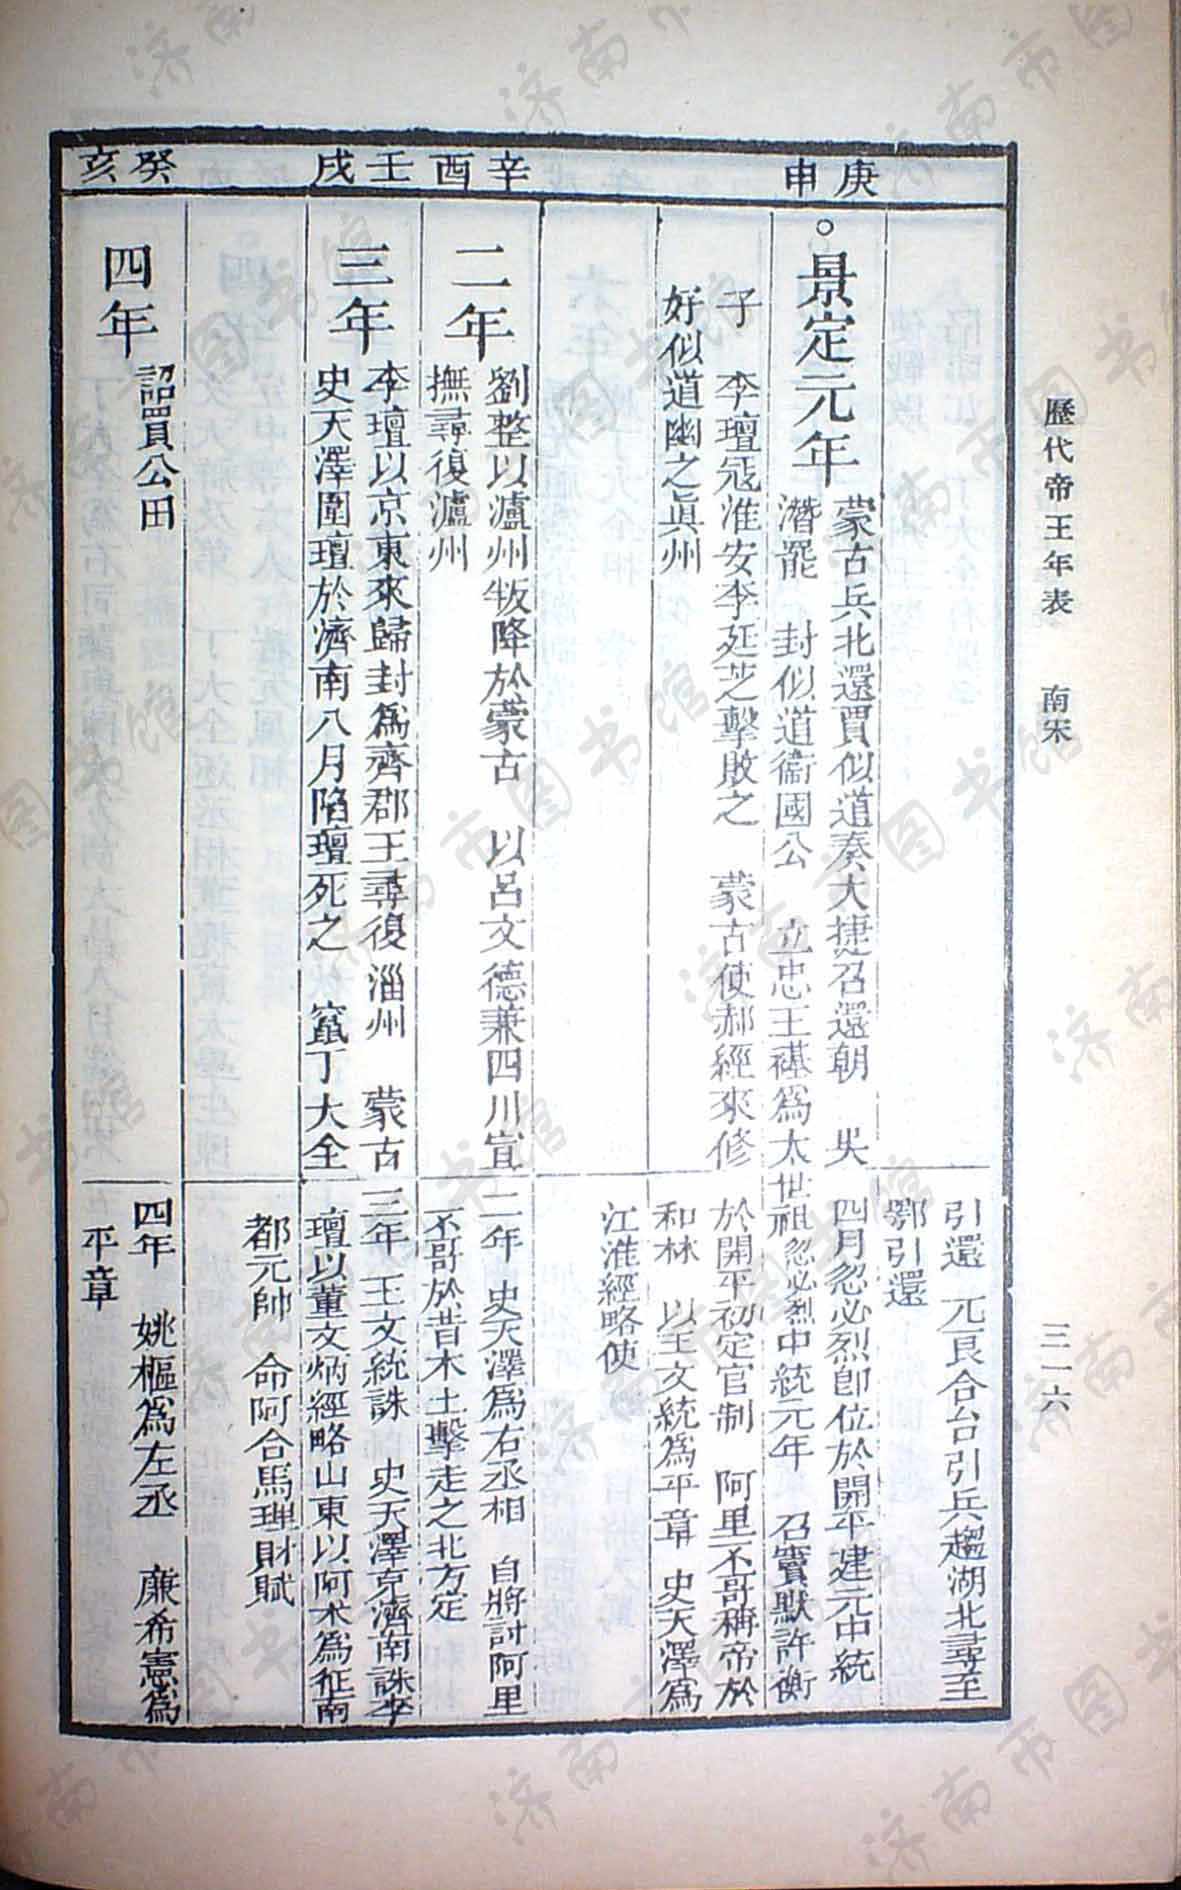 歷代帝王年表　南宋
三一六
引還　兀良合台引兵趨湖北尋至
鄂引還
庚申
。景定元年
蒙古兵北還賈似道奏大捷召還朝　吳
潛罷　封似道衞國公　立忠王禥爲太
子　李璮寇淮安李廷芝擊敗之　蒙古使郝經來修
好似道幽之眞州
四月忽必烈卽位於開平建元中統
世祖忽必烈中統元年　召竇默許衡
於開平初定官制　阿里不哥稱帝於
和林　以王文統爲平章　史天澤爲
江淮經略使
辛酉
二年
劉整以瀘州叛降於蒙古　以呂文德兼四川宣
撫尋復瀘州
二年　史天澤爲右丞相　自將討阿里
不哥於昔木土擊走之北方定
壬戌
三年
李璮以京東來歸封爲齊郡王尋復淄州　蒙古
史天澤圍璮於濟南八月陷璮死之　竄丁大全
三年　王文統誅　史天澤克濟南誅李
璮以董文炳經略山東以阿朮爲征南
都元帥　命阿合馬理財賦
癸亥
四年
詔買公田
四年　姚樞爲左丞　廉希憲爲
平章
济南市图书馆